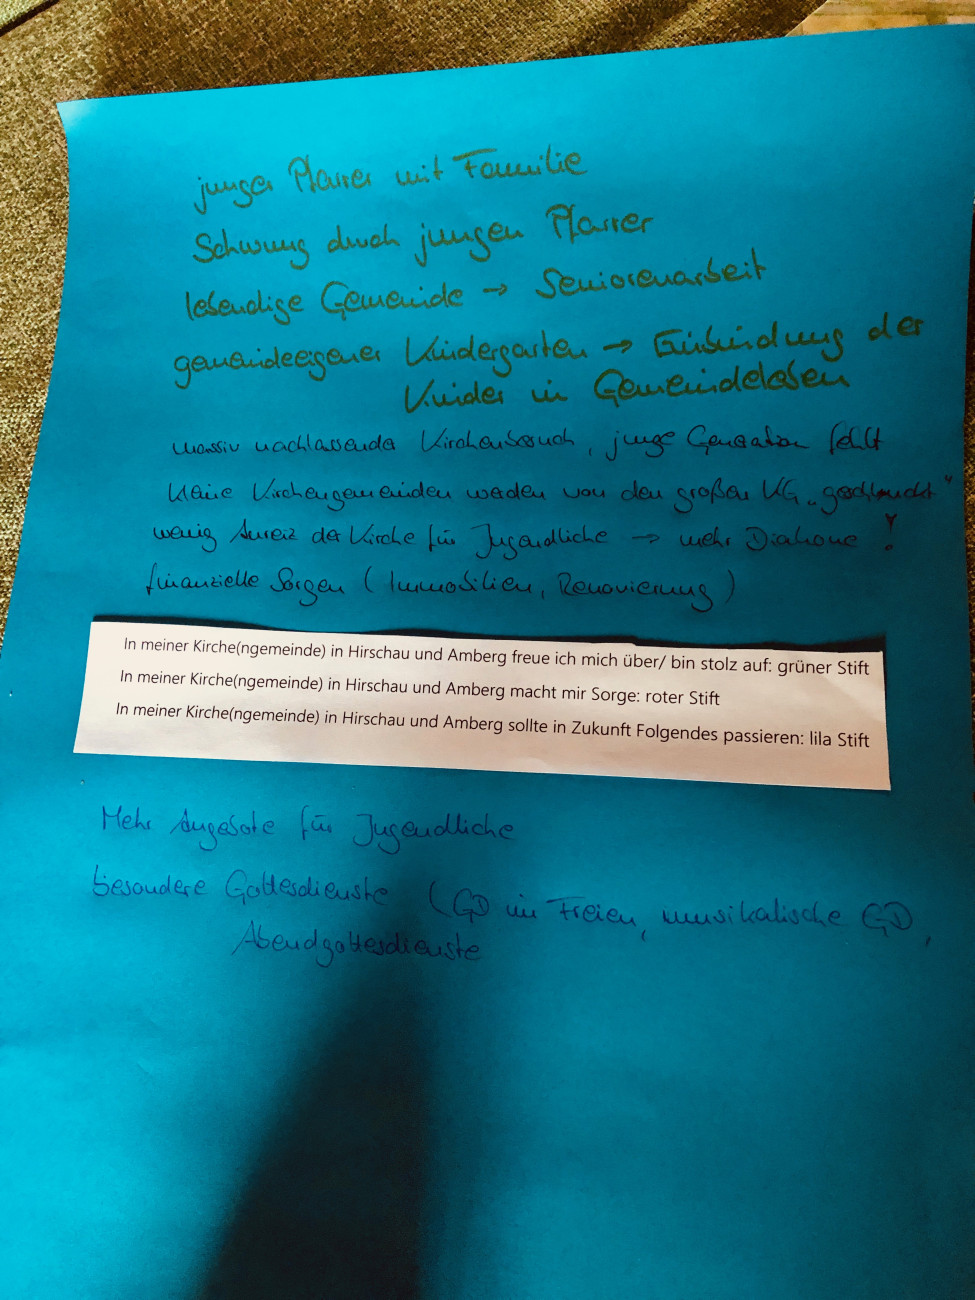 junger Pfarrer mit Familie
Schwung durch jungen Pfarrer
lebendige Gemeinde → Seniorenarbeit
gemeindeeigener Kindergarten → Einbindung der
Kinder in Gemeindeleben
massiv nachlassender Kirchenbesuch, junge Generation fehlt
kleine Kirchengemeinden werden von den großen KG „geschluckt“
wenig Anreiz der Kirche für Jugendliche → mehr Diakone!
finanzielle Sorgen (Immobilien, Renovierung)
In meiner Kirche(ngemeinde) in Hirschau und Amberg freue ich mich über/ bin stolz auf: grüner Stift
In meiner Kirche(ngemeinde) in Hirschau und Amberg macht mir Sorge: roter Stift
In meiner Kirche(ngemeinde) in Hirschau und Amberg sollte in Zukunft Folgendes passieren: lila Stift
Mehr Angebote für Jugendliche
besondere Gottesdienste (GD im Freien, musikalische GD,
Abendgottesdienste